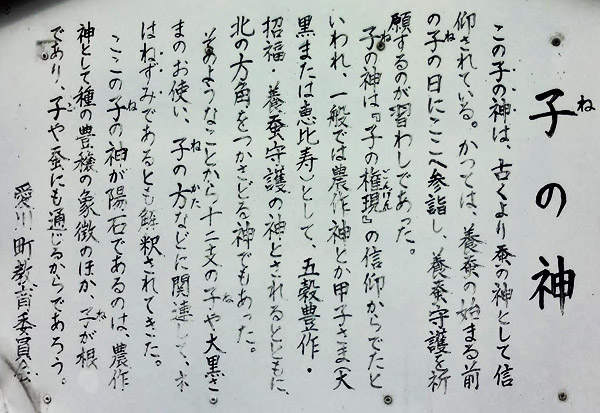 子の神
この子の神は、古くより蚕の神として信
仰されている。かつては、養蚕の始まる前
の子の日にここへ参詣し、養蚕守護を祈
願するのが習わしであった。
子の神は『子の権現』の信仰からでたと
いわれ、一般では農作神とか甲子さま(大
黒または恵比寿)として、五穀豊作・
招福・養蚕守護の神とされるとともに、
北の方角をつかさどる神でもあった。
そのようなことから十二支の子や大黒さ
まのお使い、子の方などに関連して、ネ
はねずみであるとも解釈されてきた。
ここの子の神が陽石であるのは、農作
神として種の豊穣の象徴のほか、子が根
であり、子や蚕にも通じるからであろう。
愛川町教育委員会